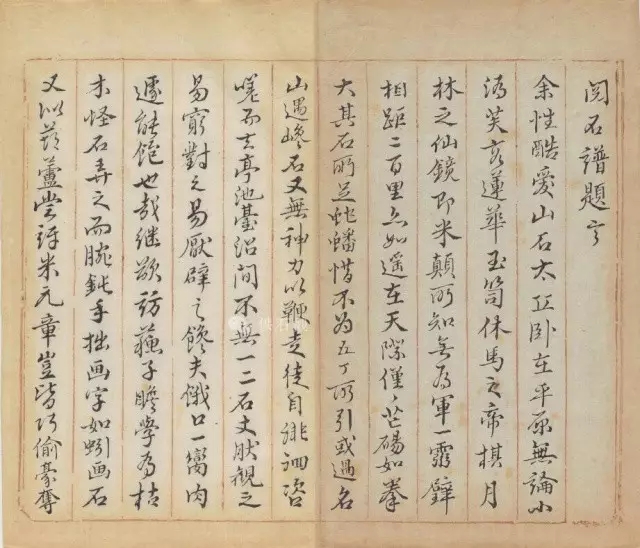 阅石谱题言
余性酷爱山石太丘卧在平原無論小
海芙蓉蓮華玉笥休馬之帝棋月
林之仙鏡即米顛所知無為軍一靈璧
相距二百里亦如遥在天際僅〻芒碭如拳
大其石所足蛇蟠惜不为五丁所引或遇名
山遇峰石又無神力以鞭走徒自徘徊咨
嗟而去亭池臺沼間不無一二石丈肰觀之
易窮對之易厭辟之饞夫餓口一臠肉
遽能飽也哉继欲访蘇子瞻学為枯
木怪石弄之而腕鈍手拙画字如蚓画石
又似蔬蘆嘗訝米元章豈皆巧偷豪奪